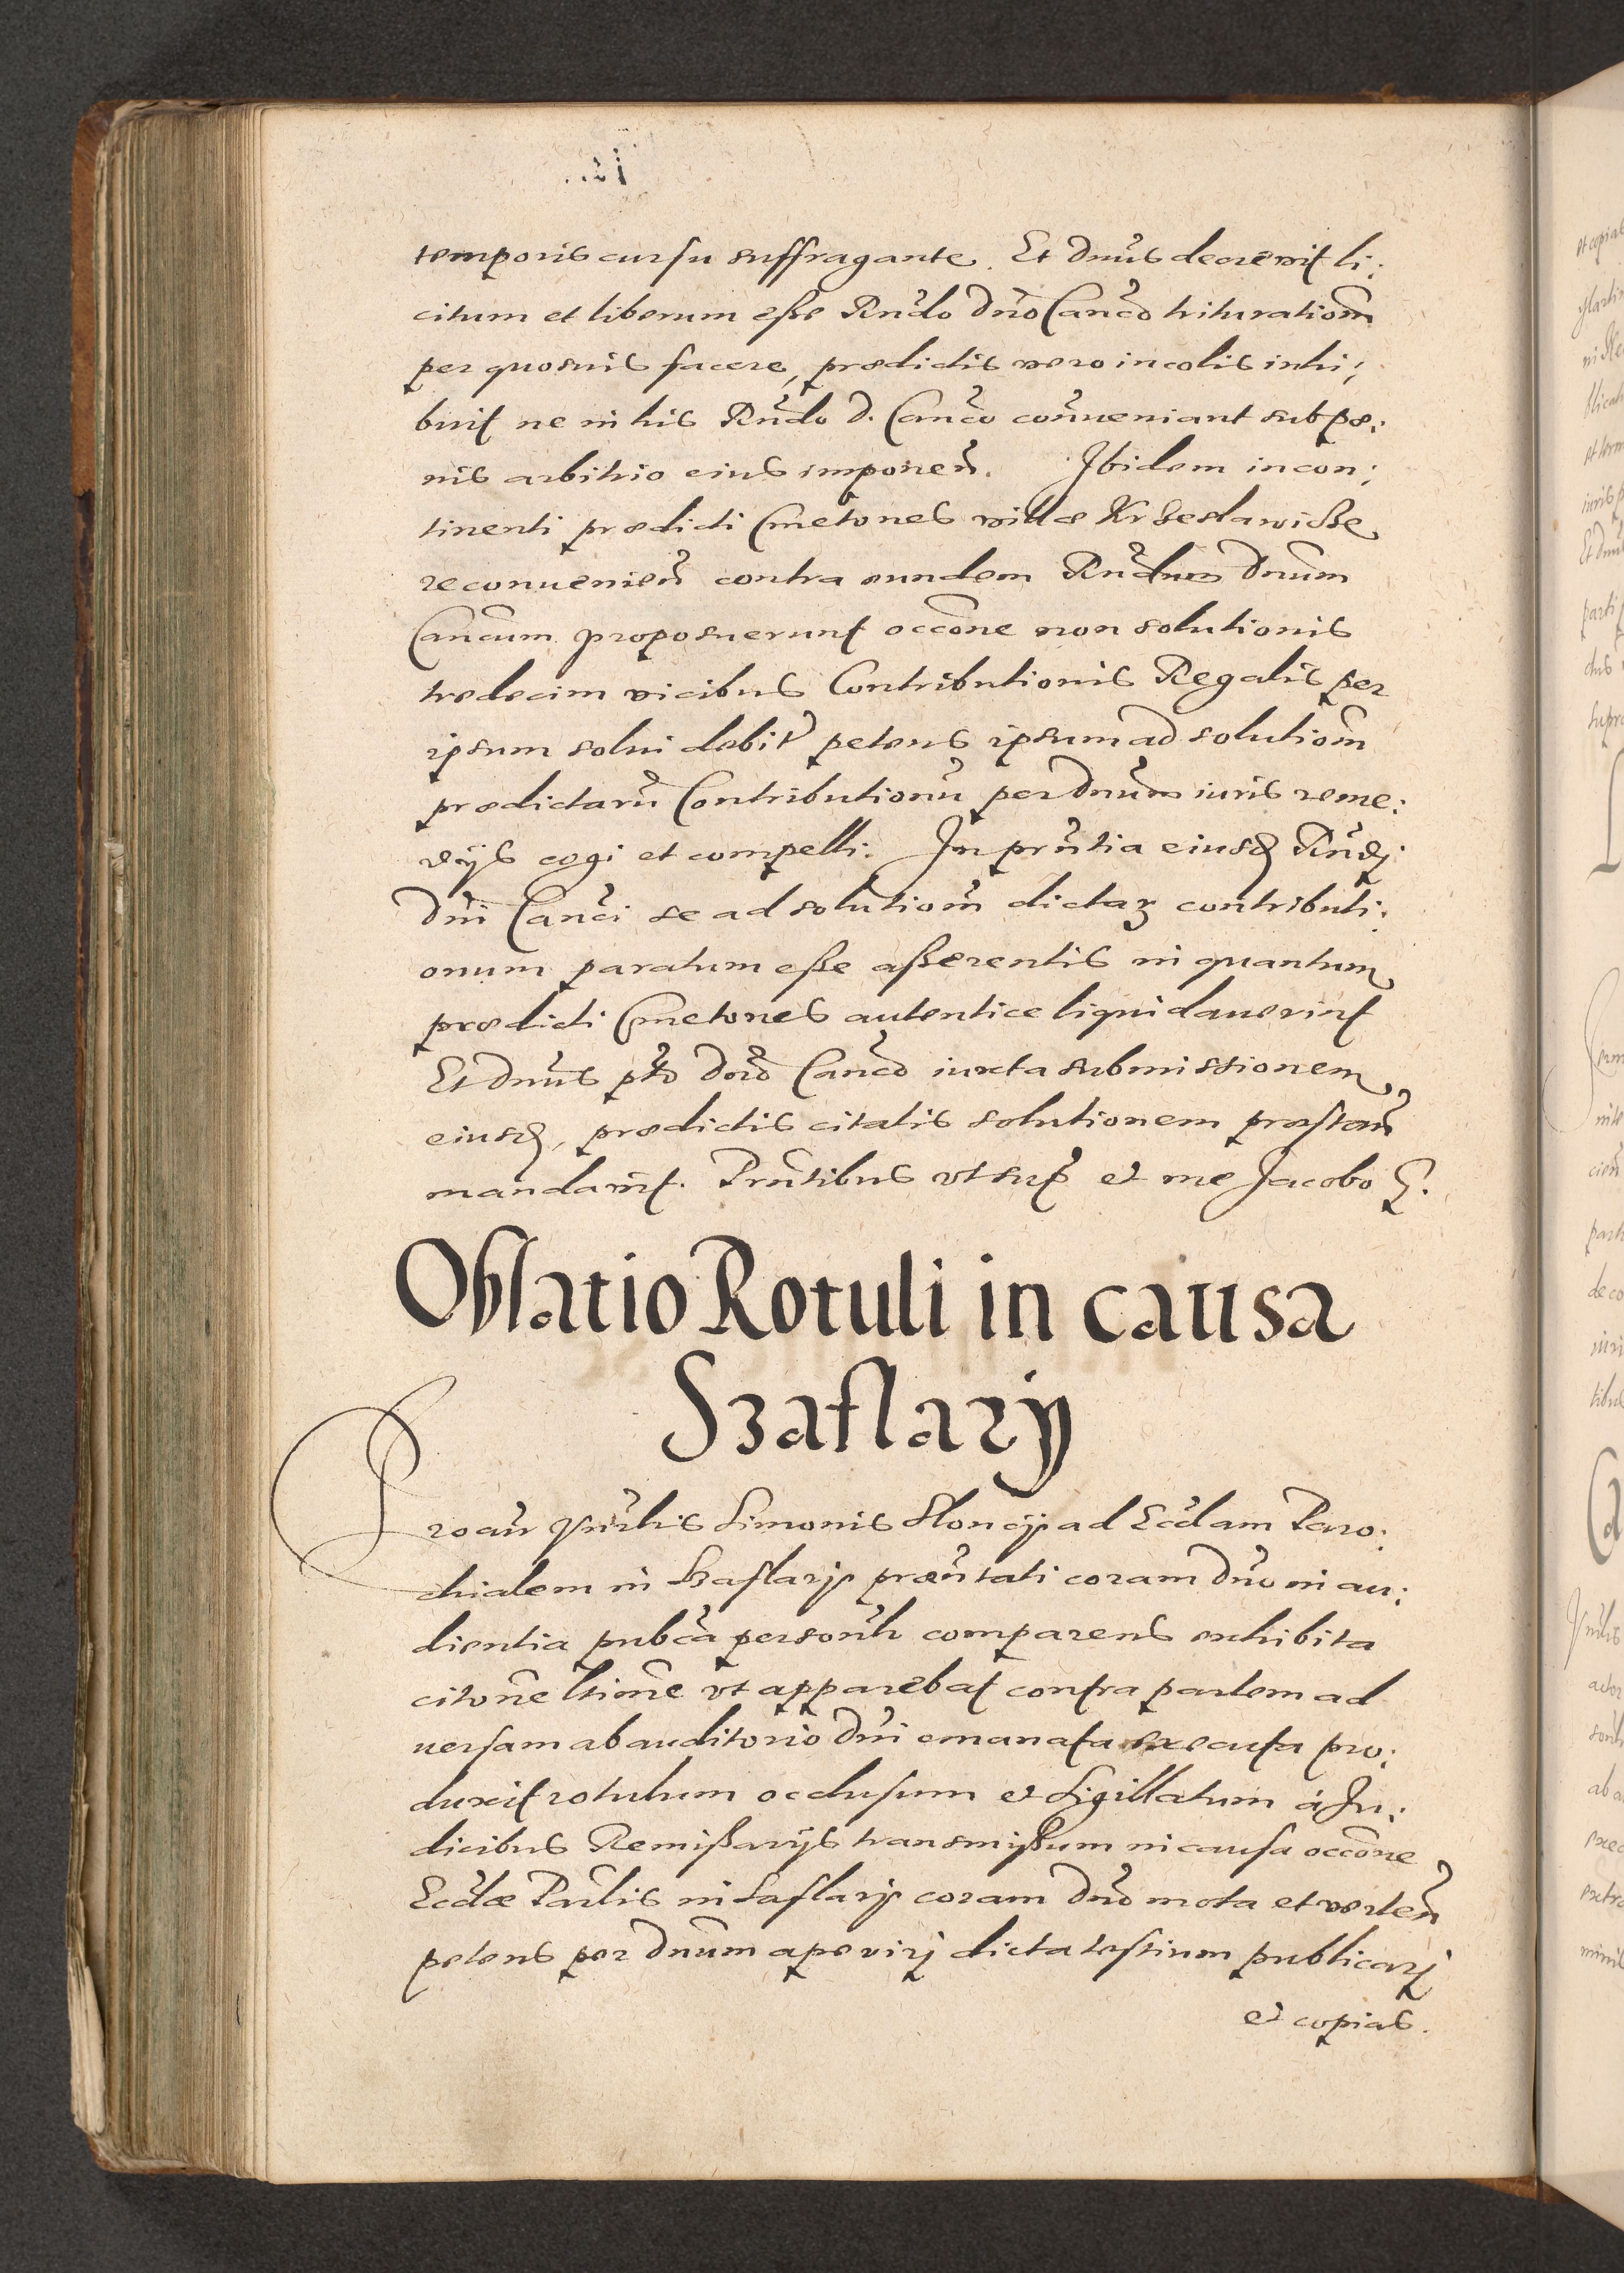 temporis cursu suffragante. Et Dnus decrevit li:
citum et liberum esse Rndo Dno Canco trituratiom
per quosuis facere, prædictis vero incolis inhi:
buit ne in his Rndo D. Canco conveniant sub pœ:
nis arbitrio eius imponen. Ibidem incon:
tinenti prædicti Cmetones villæ Krzeslawicze
reconuenien contra eundem Rndum Dnum
Cancum proposuerunt occone non solutionis
tredecim vicibus Contributionis Regalis per
ipsum solui debit petens ipsum ad solutiom
prædictaru Contributionu per Dnum iuris reme:
dijs cogi et compelli. In prntia eiusd Rndj
Dni Canci se ad solutiom dictaꝝ contributi:
onum paratum esse asserentis in quantum
prædicti Cmetones autentice liquidauerint
Et Dnus pto Dno Canco iuxta submissionem
eiusd, prædictis citatis solutionem præstan
mandavit. Prntibus vt sup et me Jacobo
Oblatio Rotuli in causa
Szaflary
Procur Vnrlis Simonis Sloncij ad Eccl̄am Paro:
chialem in Szaflarÿ præntati coram Dno in au:
dientia pubca personlr comparens exhibita
citone ltime vt apparebat contra partem ad
uersam ab auditorio Dni emanata executa pro:
duxit rotulum occlusum et sigillatum à Ju:
dicibus Remissarijs transmissum in causa occone
Eccliæ Parlis in Saflarÿ coram Dno mota et verten
petens per Dnum aperirj dicta testium publicarj
et copias.